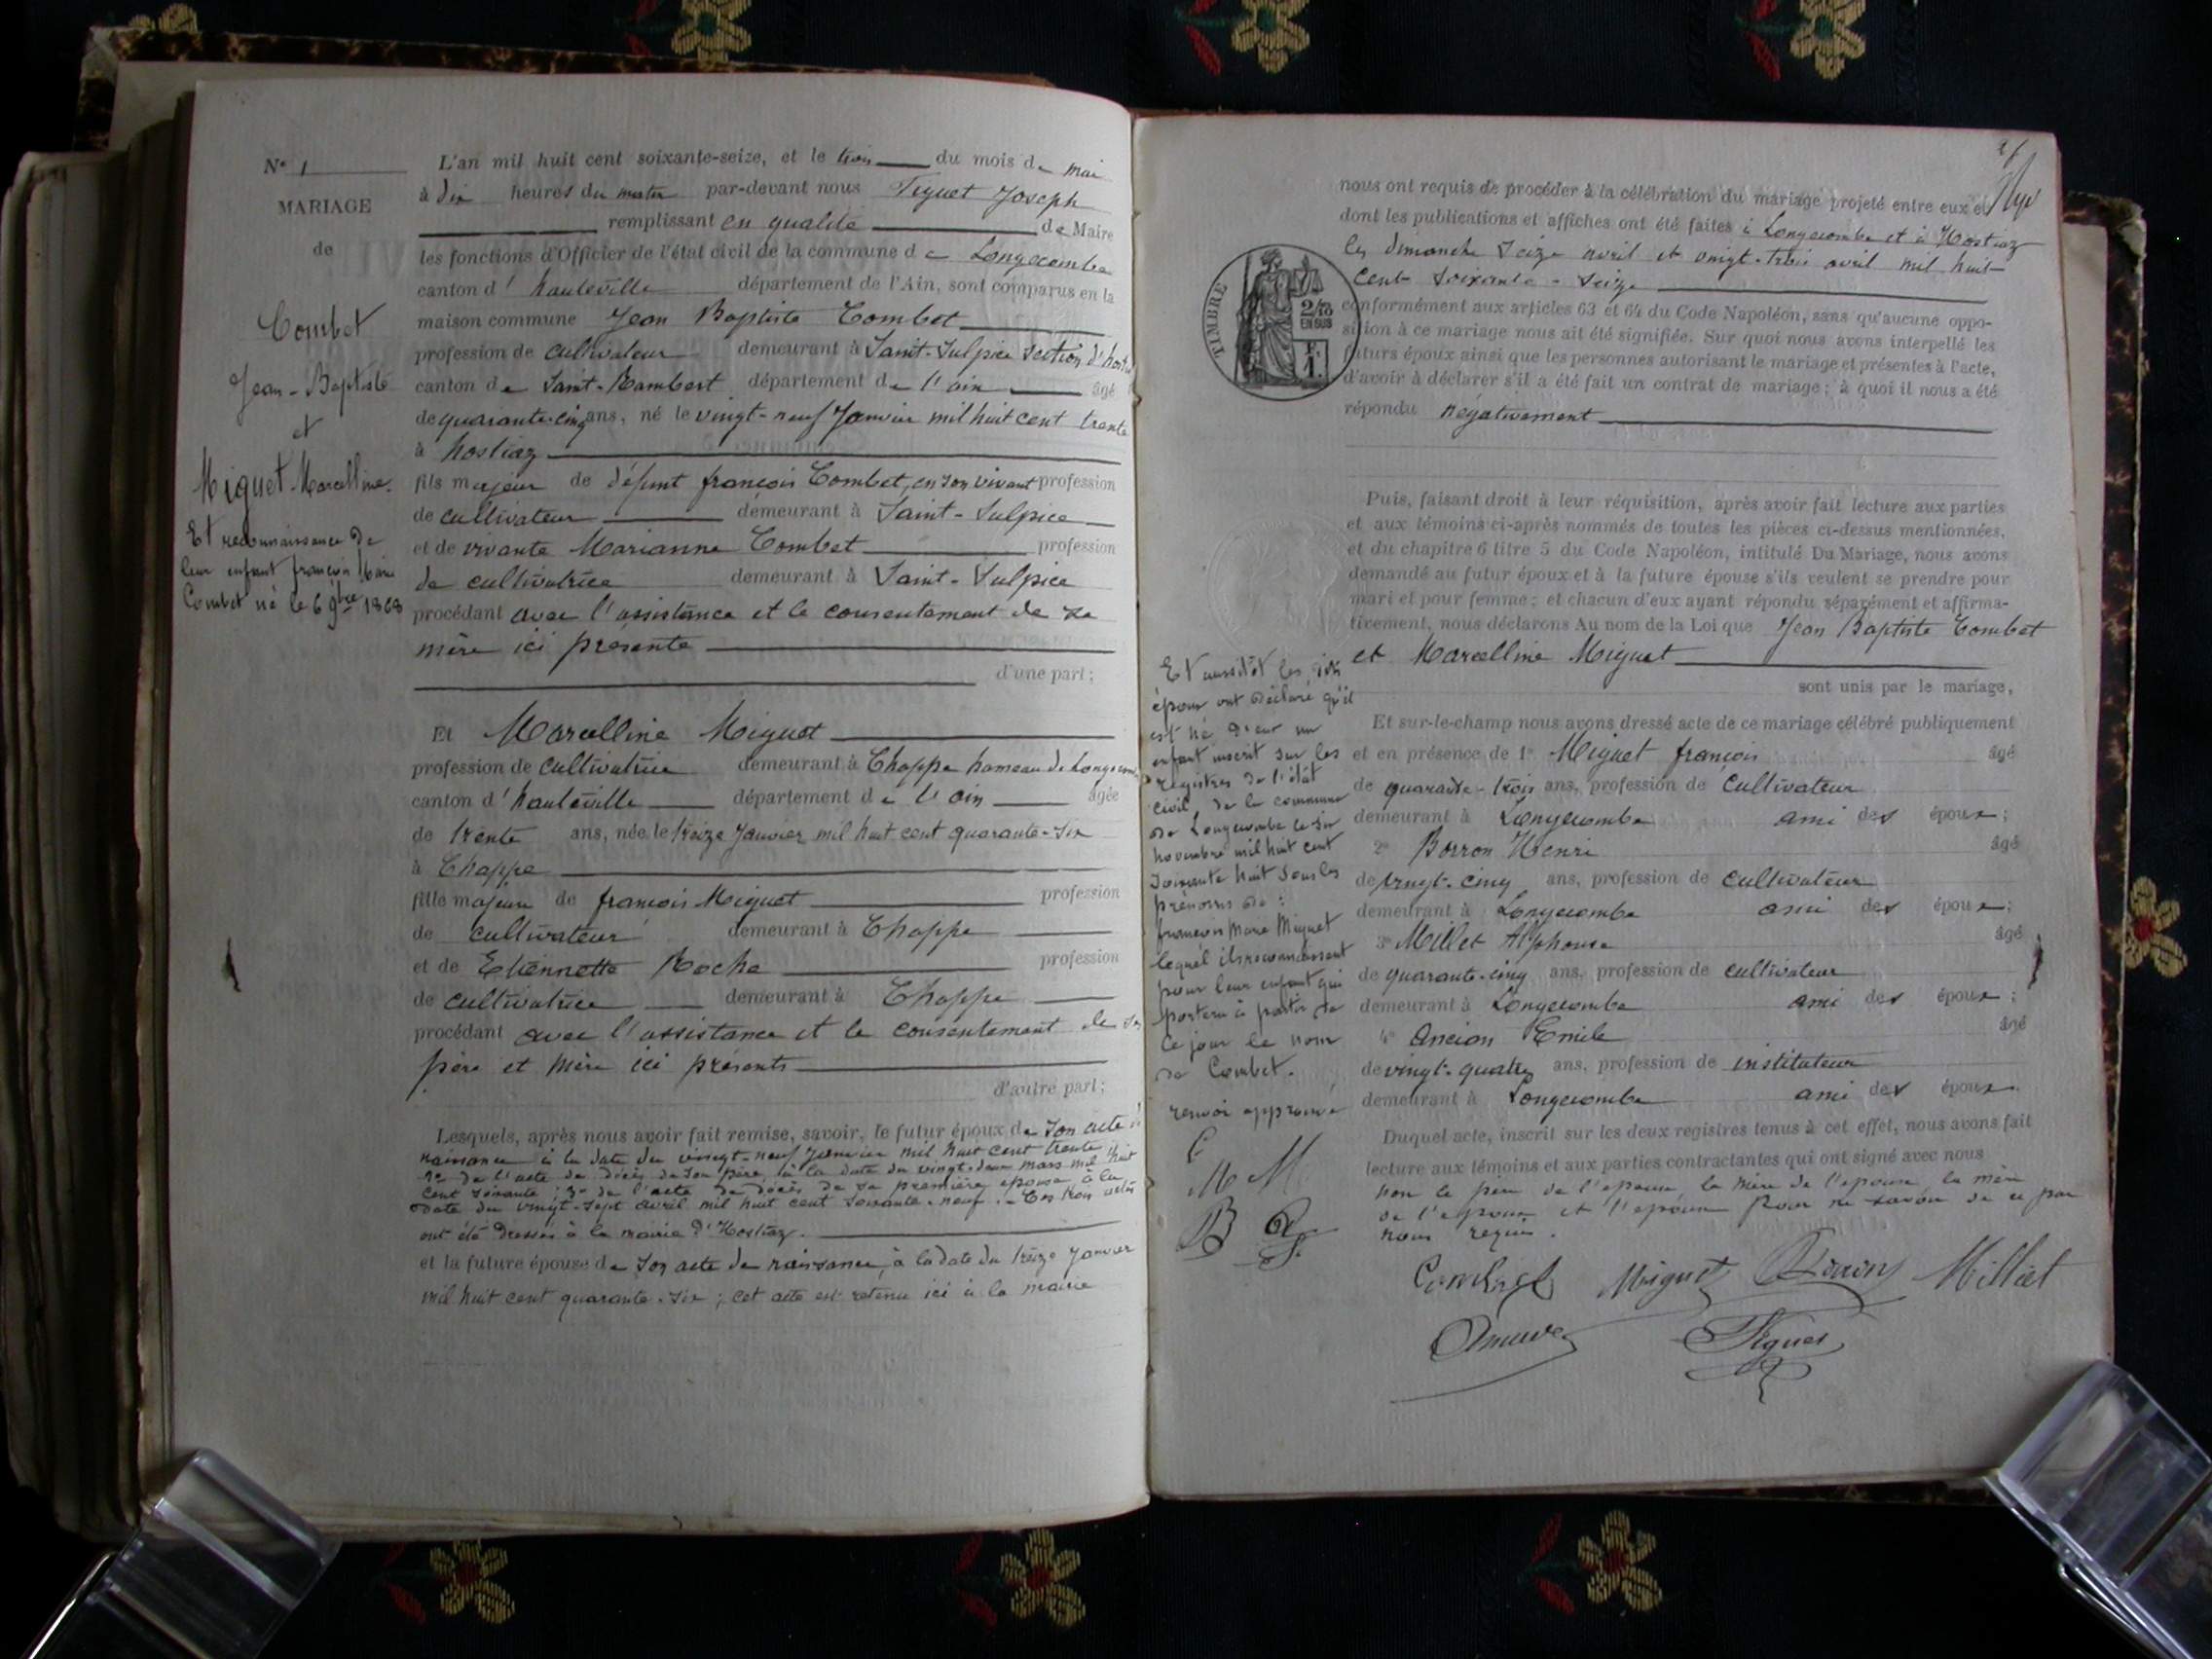 N° 1
MARIAGE
de
Combet
Jean-Baptiste
et
Miguet Marcelline.
Et reconnaissance de
leur enfant françois Marie
Combet né le 6 9bre 1868
L'an mil huit cent soixante-seize, et le trois du mois de mai
à dix heures du matin par-devant nous Tiguet Joseph
remplissant en qualité de Maire
les fonctions d'Officier de l'état civil de la commune de Longecombe
canton d'hauteville département de l'Ain, sont comparus en la
maison commune Jean Baptiste Combet
profession de cultivateur demeurant à Saint-Sulpice section d'
canton de Saint-Rambert département de l'ain âgé
de quarante-cinq ans, né le vingt-neuf Janvier mil huit cent trente
à hostiaz
fils majeur de défunt françois Combet, en son vivant profession
de cultivateur demeurant à Saint-Sulpice
et de vivante Marianne Combet profession
de cultivatrice demeurant à Saint-Sulpice
procédant avec l'assistance et le consentement de sa
mère ici présente
d'une part;
Et Marcelline Miguet
profession de cultivatrice demeurant à Chappe hameau de
canton d'hauteville département de l'ain âgée
de trente ans, née le treize Janvier mil huit cent quarante-six
à Chappe
fille majeure de françois Miguet profession
de cultivateur demeurant à Chappe
et de Etiennette Roche profession
de cultivatrice demeurant à Chappe
procédant avec l'assistance et le consentement de ses
père et mère ici présents
d'autre part;
Lesquels, après nous avoir fait remise, savoir, le futur époux de son acte de
naissance à la date du vingt-neuf Janvier mil huit cent trente
2° de l'acte de décès de son père, à la date du vingt-deux mars mil huit
cent soixante; 3° de l'acte de décès de sa première épouse à la
date du vingt-sept avril mil huit cent soixante-neuf. Ces trois actes
ont été dressés à la mairie d'Hostiaz.
et la future épouse de son acte de naissance, à la date du treize Janvier
mil huit cent quarante-six; cet acte est retenu ici à la mairie
nous ont requis de procéder à la célébration du mariage projeté entre eux et
dont les publications et affiches ont été faites à Longecombe et à Hostiaz
les dimanche seize avril et vingt-trois avril mil huit
cent soixante-seize
conformément aux articles 63 et 64 du Code Napoléon, sans qu'aucune oppo-
sition à ce mariage nous ait été signifiée. Sur quoi nous avons interpellé les
futurs époux ainsi que les personnes autorisant le mariage et présentes à l'acte,
d'avoir à déclarer s'il a été fait un contrat de mariage; à quoi il nous a été
répondu négativement
TIMBRE
2/10
EN SUS
F.
1.
Puis, faisant droit à leur réquisition, après avoir fait lecture aux parties
et aux témoins ci-après nommés de toutes les pièces ci-dessus mentionnées,
et du chapitre 6 titre 5 du Code Napoléon, intitulé Du Mariage, nous avons
demandé au futur époux et à la future épouse s'ils veulent se prendre pour
mari et pour femme; et chacun d'eux ayant répondu séparément et affirma-
tivement, nous déclarons Au nom de la Loi que Jean Baptiste Combet
et Marcelline Miguet
sont unis par le mariage,
Et sur-le-champ nous avons dressé acte de ce mariage célébré publiquement
et en présence de 1° Miguet françois âgé
de quarante-trois ans, profession de cultivateur
demeurant à Longecombe ami des époux;
2° Borron Henri âgé
de vingt-cinq ans, profession de cultivateur
demeurant à Longecombe ami des époux;
3° Millet Alphonse âgé
de quarante-cinq ans, profession de cultivateur
demeurant à Longecombe ami des époux;
4° Ancian Emile âgé
de vingt-quatre ans, profession de instituteur
demeurant à Longecombe ami des époux.
Duquel acte, inscrit sur les deux registres tenus à cet effet, nous avons fait
lecture aux témoins et aux parties contractantes qui ont signé avec nous
non le père de l'épouse la mère de l'épouse, la mère
de l'époux et l'épouse pour ne savoir de ce par
nous requis.
Et aussitôt les dits
époux ont déclaré qu'il
est né d'eux un
enfant inscrit sur les
registres de l'état
civil de la commune
de Longecombe le six
novembre mil huit cent
soixante huit sous les
prénoms de:
françois Marie Miguet
lequel ils reconnaissent
pour leur enfant qui
portera à partir de
ce jour le nom
de Combet.
renvoi approuvé
C
M M
B
Combet Miguet Borron Millet
Tiguet